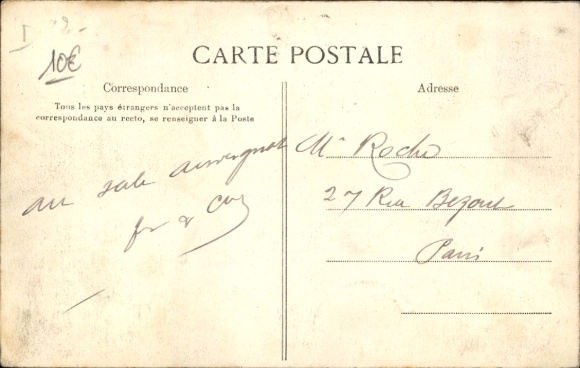 10€
CARTE POSTALE
Correspondance
Tous les pays étrangers n'acceptent pas la
correspondance au recto, se renseigner à la Poste
au sale auvergnat
Adresse
Mr Roche
27 Rue Bezout
Paris